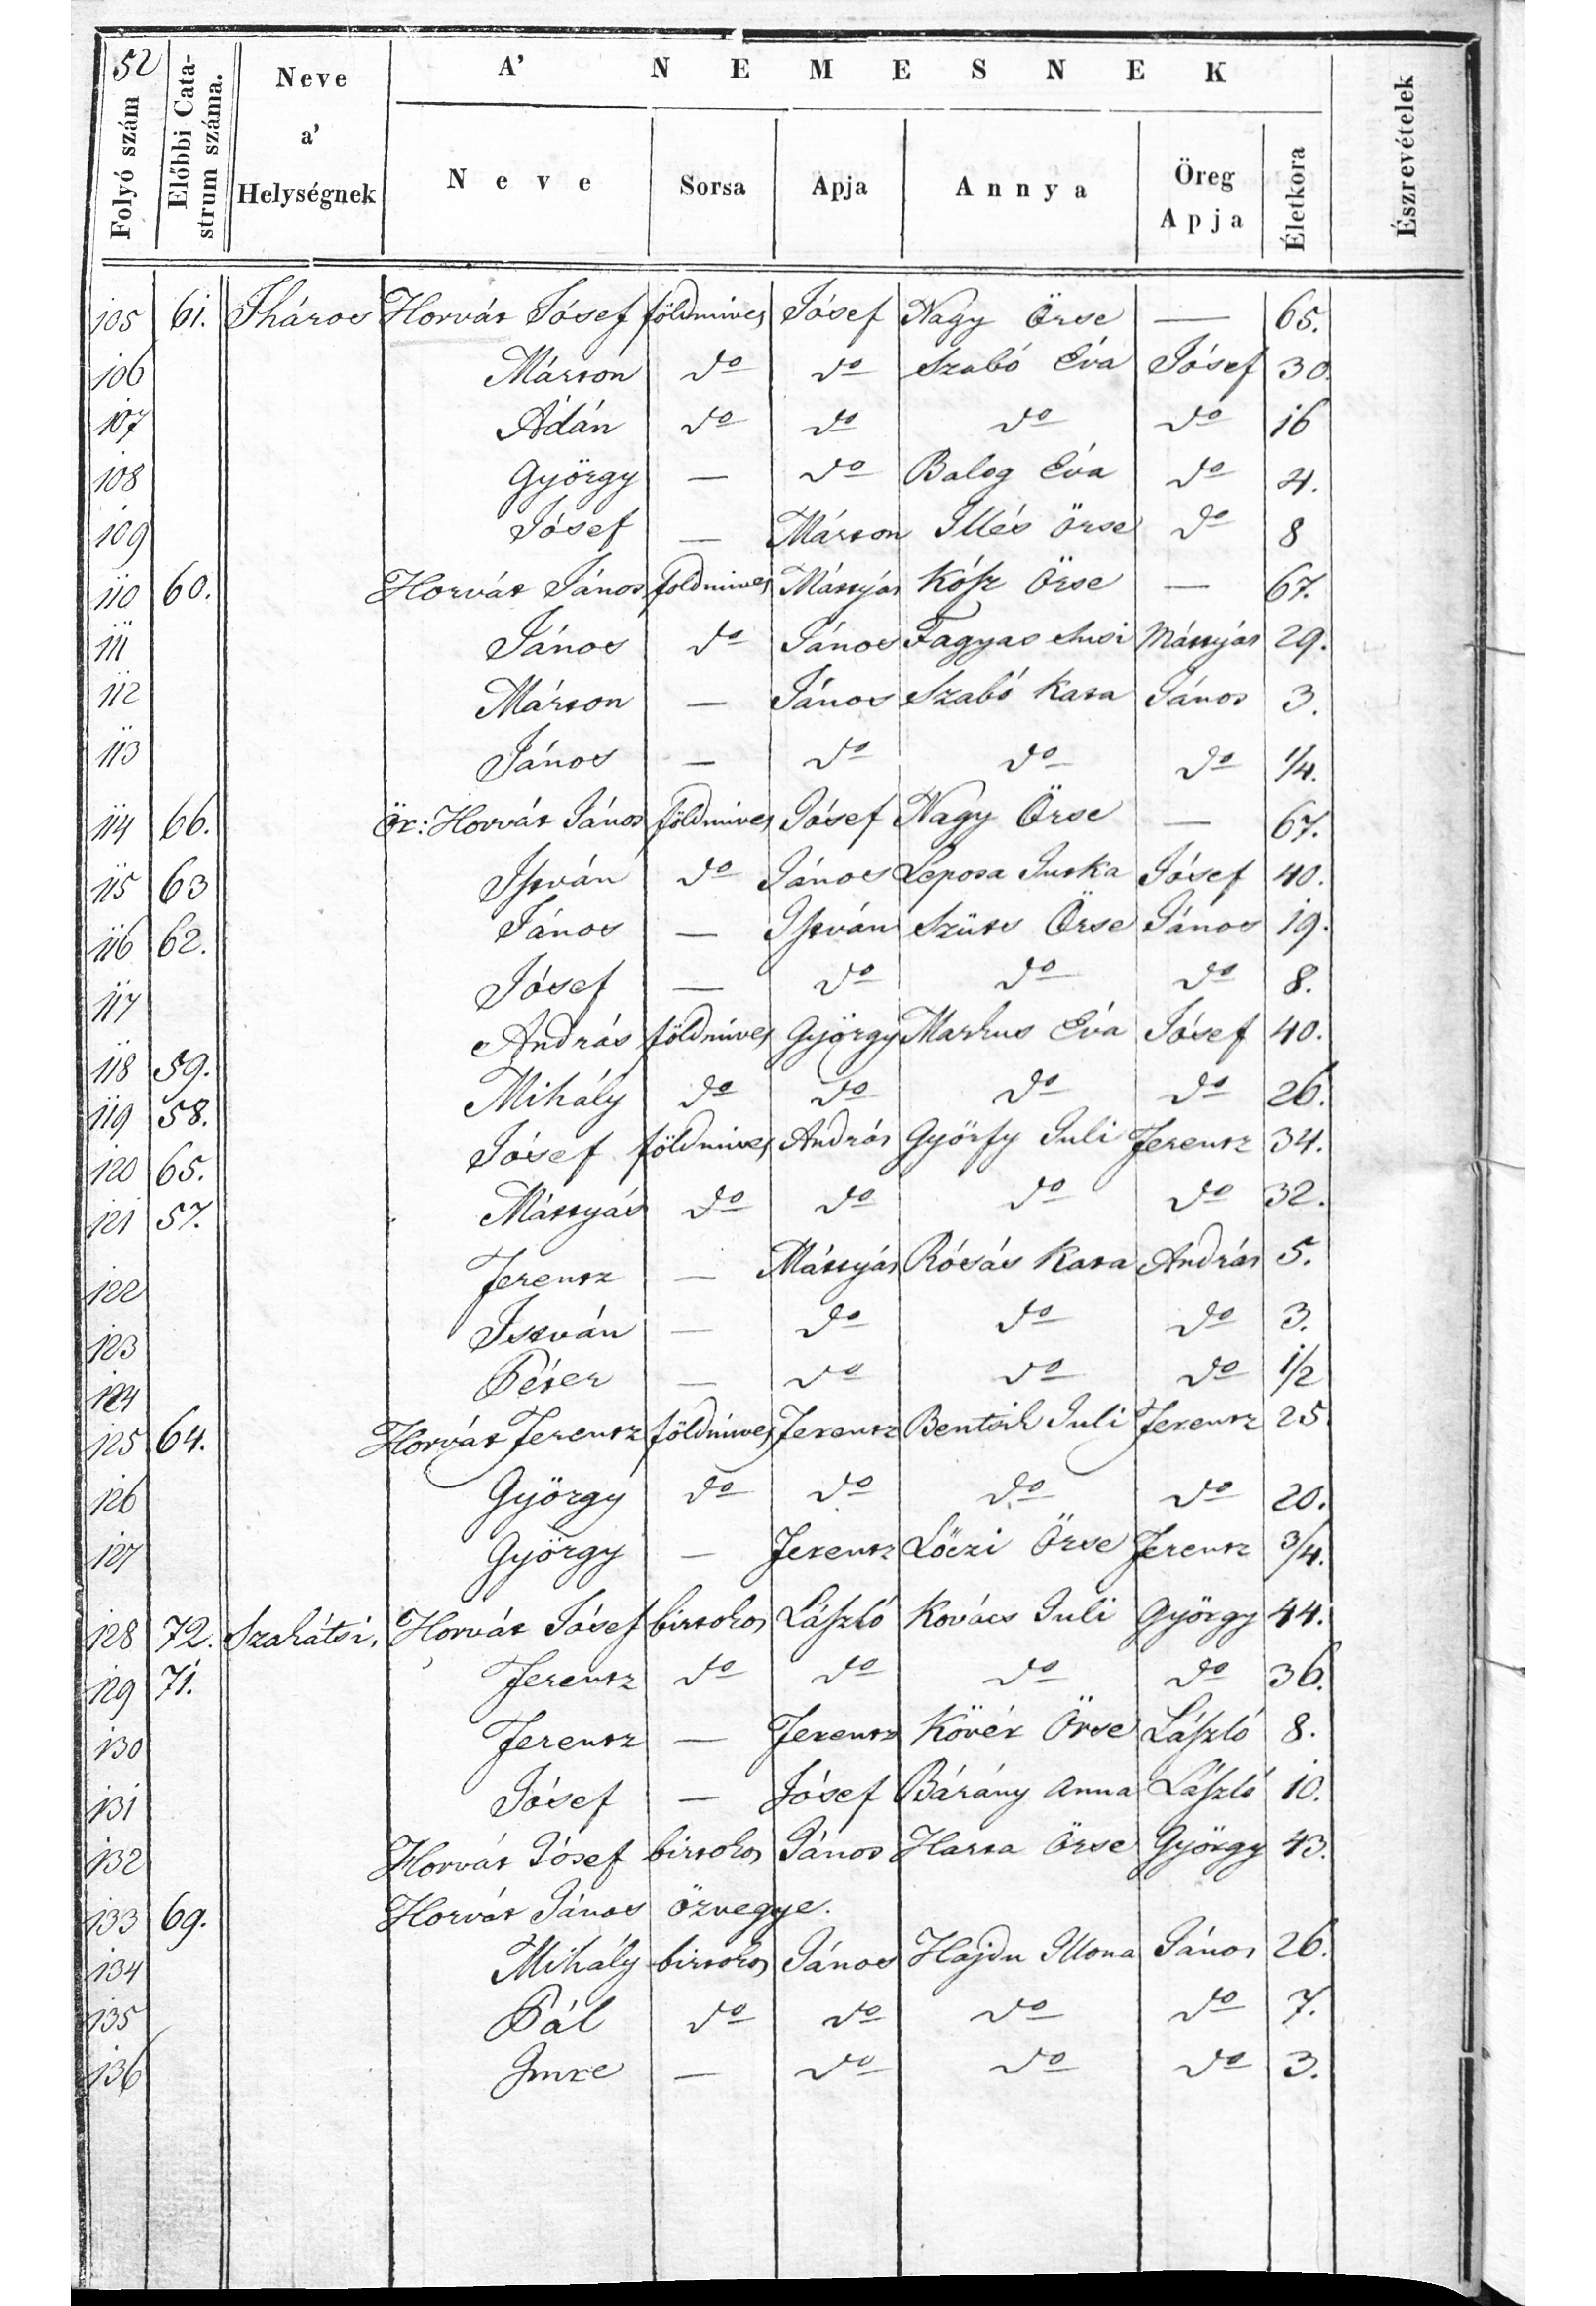 52
A' NEMESNEK
Folyó szám | Előbbi Catastrum száma. | Neve a' Helységnek | Neve | Sorsa | Apja | Annya | Öreg Apja | Életkora | Észrevételek
105 61. Iháros Horvát Jósef földmives Jósef Nagy Örse — 65.
106 Márton do do Szabó Éva Jósef 30.
107 Ádán do do do do 16
108 György — do Balog Éva do 4.
109 Jósef — Márton Illés Örse do 8
110 60. Horvát János földmives Máttyás Kósz Örse — 67.
111 János do János Fagyas Susi Máttyás 29.
112 Márton — János Szabó Kata János 3.
113 János — do do do 1/4.
114 66. Ör: Horvát János földmives Jósef Nagy Örse — 67.
115 63 István do János Leposa Juska Jósef 40.
116 62. János — István Szüts Örse János 19.
117 Jósef — do do do 8.
118 59. András földmives György Markus Éva Jósef 40.
119 58. Mihály do do do do 26.
120 65. Jósef földmives András Györfy Juli Ferentz 34.
121 57. Máttyás do do do do 32.
122 Ferentz — Máttyás Rósás Kata András 5.
123 István — do do do 3.
124 Péter — do do do 1/2
125 64. Horvát Ferentz földmives Ferentz Bentsik Juli Ferentz 25
126 György do do do do 20.
127 György — Ferentz Löczi Örse Ferentz 3/4.
128 72. Szakátsi. Horvát Jósef birtokos László Kovács Juli György 44.
129 71. Ferentz do do do do 36.
130 Ferentz — Ferentz Kövér Örse László 8.
131 Jósef — Jósef Bárány Anna László 10.
132 Horvát Jósef birtokos János Harsa Örse György 43.
133 69. Horvát János özvegye.
134 Mihály birtokos János Hajdu Illona János 26.
135 Pál do do do do 7.
136 Imre — do do do 3.